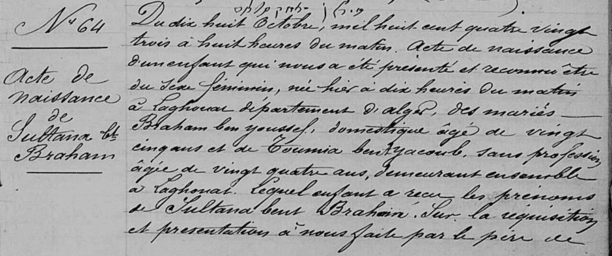 No 64
Acte de
naissance
de
Sultana bt
Braham
Du dix huit Octobre, mil huit cent quatre vingt
trois à huit heures du matin. Acte de naissance
d'un enfant qui nous a été présenté et reconnu être
du sexe féminin, née hier à dix heures du matin
à Laghouat département d'Alger, des mariés
Braham ben youssef, domestique âgé de vingt
cinq ans et de Toumia bent Yacoub, sans profession
âgée de vingt quatre ans, demeurant ensemble
à Laghouat. Lequel enfant a reçu les prénoms
de Sultana bent Braham. Sur la réquisition
et présentation à nous faite par le père de